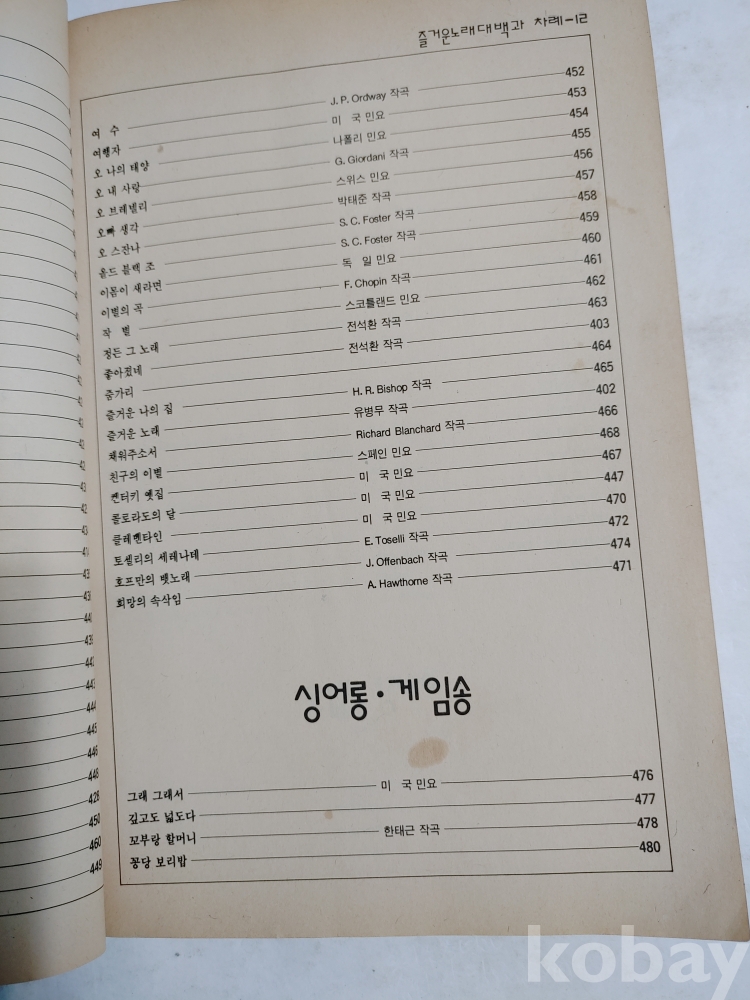 즐거운노래대백과 차례-12
여 수 J. P. Ordway 작곡 452
여행자 미 국 민요 453
오 나의 태양 나폴리 민요 454
오 내 사랑 G. Giordani 작곡 455
오 브레넬리 스위스 민요 456
오빠 생각 박태준 작곡 457
오 스잔나 S. C. Foster 작곡 458
올드 블랙 조 S. C. Foster 작곡 459
이몸이 새라면 독 일 민요 460
이별의 곡 F. Chopin 작곡 461
작 별 스코틀랜드 민요 462
정든 그 노래 전석환 작곡 463
좋아졌네 전석환 작곡 403
줌가리 464
즐거운 나의 집 H. R. Bishop 작곡 465
즐거운 노래 유병무 작곡 402
채워주소서 Richard Blanchard 작곡 466
친구의 이별 스페인 민요 468
켄터키 옛집 미 국 민요 467
콜로라도의 달 미 국 민요 447
클레멘타인 미 국 민요 470
토셀리의 세레나데 E. Toselli 작곡 472
호프만의 뱃노래 J. Offenbach 작곡 474
희망의 속삭임 A. Hawthorne 작곡 471
싱어롱·게임송
그래 그래서 미 국 민요 476
깊고도 넓도다 477
꼬부랑 할머니 한태근 작곡 478
꽁당 보리밥 480
444
445
446
448
428
450
460
449
kobay